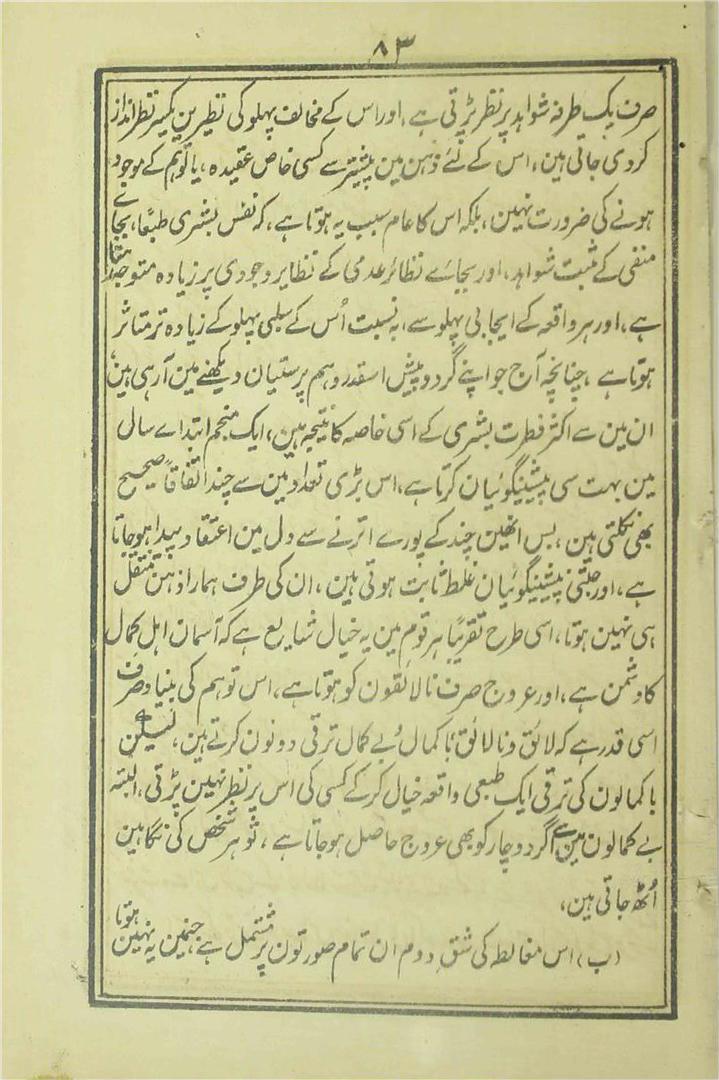 ۸۳
صرف یک طرفہ شواہد پر نظر پڑتی ہے، اور اس کے مخالف پہلو کی نظیرین یکسر نظر انداز
کر دی جاتی ہین، اس کے لئے ذہن مین پیشتر سے کسی خاص عقیدہ، یا توہم کے موجود
ہونے کی ضرورت نہین، بلکہ اس کا عام سبب یہ ہوتا ہے، کہ نفس بشری طبعًا، بجائے
منفی کے مثبت شواہد، اور بجائے نظائر عدمی کے نظایر وجودی پر زیادہ متوجہ ہوتا
ہے، اور ہر واقعہ کے ایجابی پہلو سے، بہ نسبت اُس کے سلبی پہلو کے زیادہ تر متاثر
ہوتا ہے، چنانچہ آج جو اپنے گرد و پیش اسقدر وہم پرستیان دیکھنے مین آ رہی ہین،
ان مین سے اکثر فطرت بشری کے اسی خاصہ کا نتیجہ ہین، ایک منجم ابتداے سال
مین بہت سی پیشینگوئیان کرتا ہے، اس بڑی تعداد مین سے چند اتفاقاً صحیح
بھی نکلتی ہین، بس انھین چند کے پورے اترنے سے دل مین اعتقاد پیدا ہو جاتا
ہے، اور جتنی پیشینگوئیان غلط ثابت ہوتی ہین، ان کی طرف ہمارا ذہن منتقل
ہی نہین ہوتا، اسی طرح تقریبًا ہر قوم مین یہ خیال شایع ہے کہ آسمان اہل کمال
کا دشمن ہے، اور عروج صرف نالائقون کو ہوتا ہے، اس توہم کی بنیاد صرف
اسی قدر ہے کہ لائق و نالائق باکمال و بے کمال ترقی دونون کرتے ہین، لیکن
باکمالون کی ترقی ایک طبعی واقعہ خیال کر کے کسی کی اس پر نظر نہین پڑتی، البتہ
بے کمالون مین سے اگر دوچار کو بھی عروج حاصل ہو جاتا ہے، تو ہر شخص کی نگاہین
اُٹھ جاتی ہین،
(ب) اس مغالطہ کی شق دوم ان تمام صورتون پر مشتمل ہے جنمین یہ نہین ہوتا